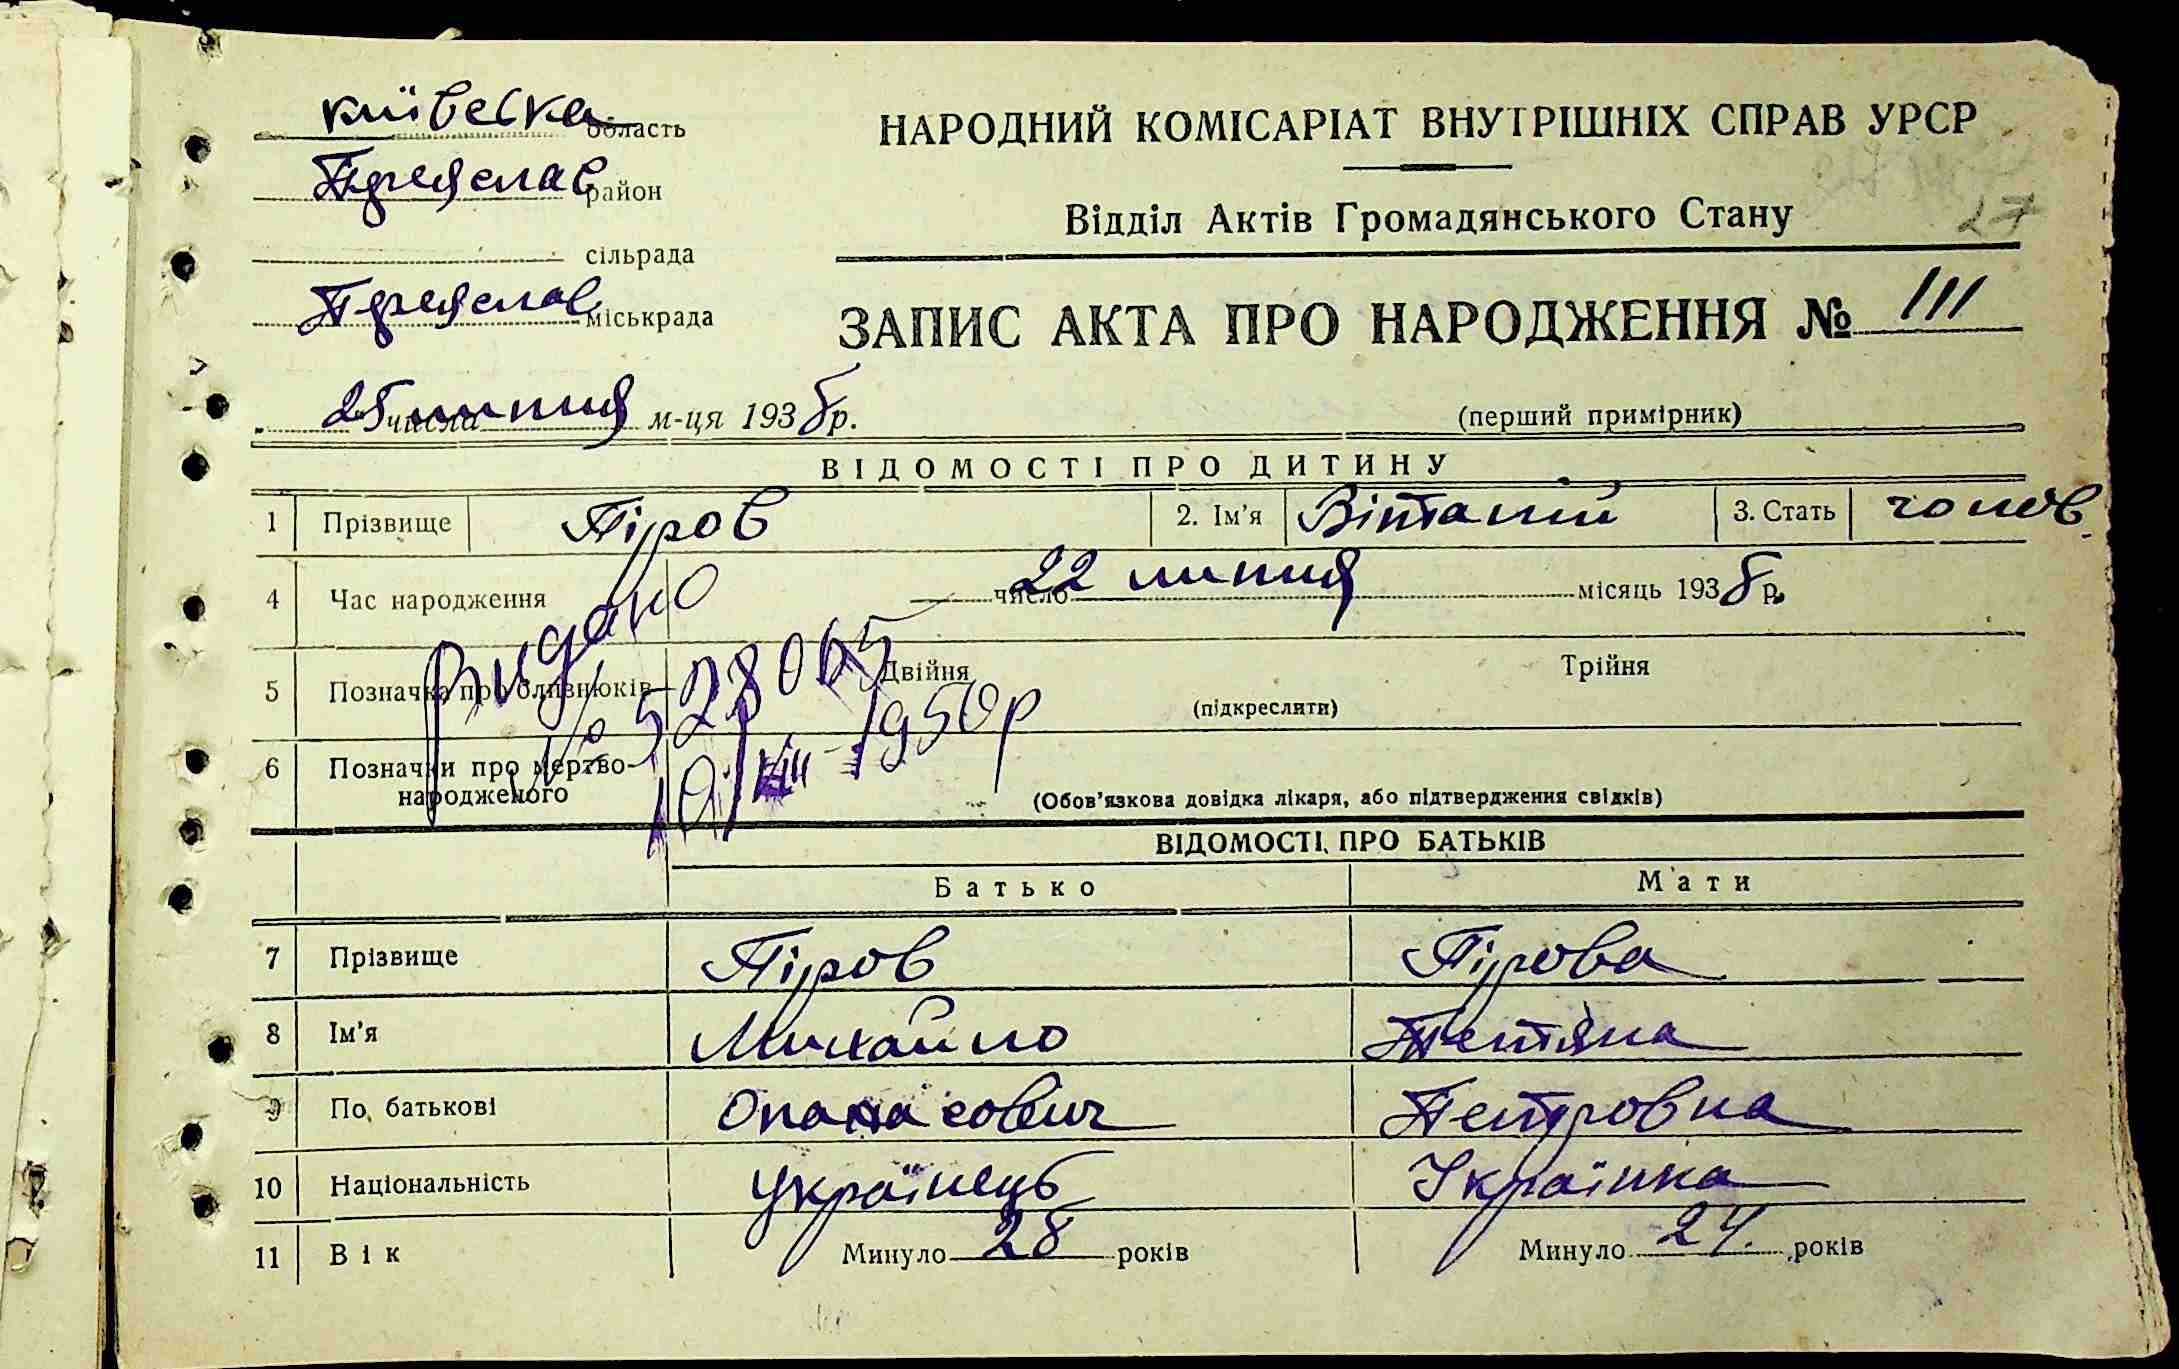 Київська область
НАРОДНИЙ КОМІСАРІАТ ВНУТРІШНІХ СПРАВ УРСР
район
27
Відділ Актів Громадянського Стану
сільрада
міськрада
ЗАПИС АКТА ПРО НАРОДЖЕННЯ № 111
25 числа липня м-ця 1938 р.
(перший примірник)
ВІДОМОСТІ ПРО ДИТИНУ
1 Прізвище Піров 2. Ім'я Віталій 3. Стать чолов.
4 Час народження 22 число липня місяць 1938 р.
Видано
№ 528065
5 Позначка про близнюків Двійня Трійня
(підкреслити)
1950 р
6 Позначки про мертво-
народженого
(Обов'язкова довідка лікаря, або підтвердження свідків)
ВІДОМОСТІ ПРО БАТЬКІВ
Батько Мати
7 Прізвище Піров Пірова
8 Ім'я Михайло
9 По батькові Опанасович Петровна
10 Національність Українець Українка
11 Вік Минуло 28 років Минуло 24. років